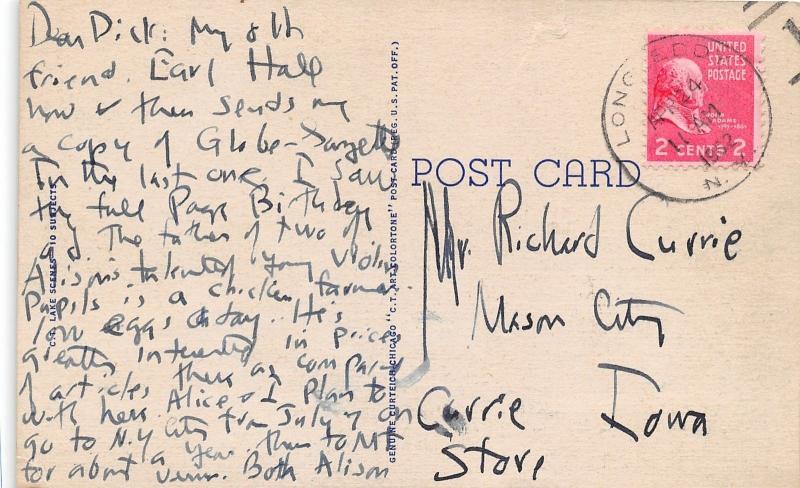 Dear Dick: My old
friend. Earl Hall
now & then sends my
a copy of Globe-Gazette
In the last one. I saw
thy full Page Birthday
ad. The father of two of
Alison's talented young violin
Pupils is a chicken farmer.
eggs a day. He's
greatly interested in price
of articles there as compared
with here. Alice & I Plan to
go to N.Y City from July 7 on
for about a year. then to
Both Alison
C.T. LAKE SCENES—10 SUBJECTS
GENUINE CURTEICH-CHICAGO "C.T. ART-COLORTONE" POST CARD (REG. U.S. PAT. OFF.)
POST CARD
UNITED
STATES
POSTAGE
JOHN
ADAMS
2 CENTS 2
LONG EDDY
APR 24
AM
N.Y.
Mr. Richard Currie
Mason City
Iowa
Currie
Store